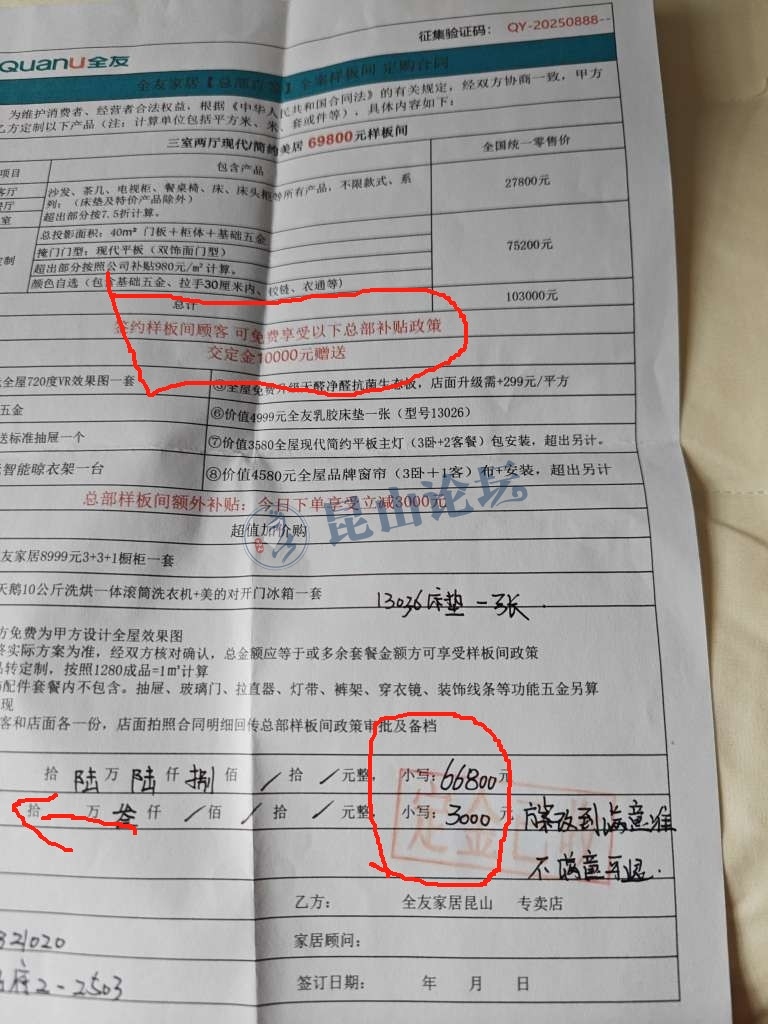 征集验证码： QY-20250888--
QuanU全友
全友家居【总部直签】全案样板间 定购合同
为维护消费者、经营者合法权益，根据《中华人民共和国合同法》的有关规定，经双方协商一致，甲方
乙方定制以下产品（注：计算单位包括平方米、米、套或件等），具体内容如下：
三室两厅现代/简约美居 69800元样板间
全国统一零售价
项目
包含产品
客厅
沙发、茶几、电视柜、餐桌椅、床、床头柜等所有产品，不限款式、系
列；（床垫及特价产品除外）
27800元
餐厅
室
超出部分按7.5折计算。
总投影面积：40m² 门板＋柜体＋基础五金
掩门门型：现代平板（双饰面门型）
75200元
定制
超出部分按照公司补贴980元/㎡计算。
颜色自选（包含基础五金、拉手30厘米内、铰链、衣通等）
总计
103000元
签约样板间顾客 可免费享受以下总部补贴政策
交定金10000元赠送
全屋720度VR效果图一套
⑤全屋免费升级大醛净醛抗菌生态板，店面升级需+299元/平方
五金
⑥价值4999元全友乳胶床垫一张（型号13026）
送标准抽屉一个
⑦价值3580全屋现代简约平板主灯（3卧+2客餐）包安装，超出另计。
智能晾衣架一台
⑧价值4580元全屋品牌窗帘（3卧＋1客）布+安装，超出另计
总部样板间额外补贴：今日下单享受立减3000元
昆山论坛
超值加价购
友家居8999元3+3+1橱柜一套
天鹅10公斤洗烘一体滚筒洗衣机+美的对开门冰箱一套
13036床垫一张.
方免费为甲方设计全屋效果图
终实际方案为准，经双方核对确认，总金额应等于或多余套餐金额方可享受样板间政策
品转定制，按照1280成品=1㎡计算
配件套餐内不包含。抽屉、玻璃门、拉直器、灯带、裤架、穿衣镜、装饰线条等功能五金另算
现
客和店面各一份，店面拍照合同明细回传总部样板间政策审批及备档
拾 陆 万 陆 仟 捌 佰 / 拾 / 元整， 小写：66800元
拾 万 叁 仟 / 佰 / 拾 / 元整， 小写：3000 元
方案改到满意准
定金已收
不满意可退.
乙方： 全友家居昆山 专卖店
821020
家居顾问：
府2-2503
签订日期： 年 月 日